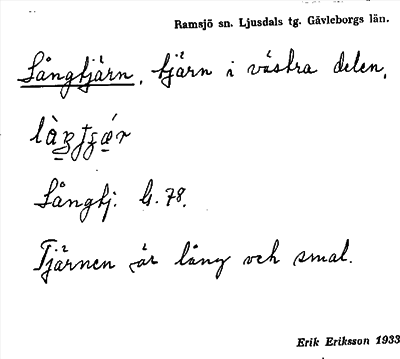 Ramsjö sn. Ljusdals tg. Gävleborgs län.
Långtjärn, tjärn i västra delen,
Långtj. G. 78.
Tjärnen är lång och smal.
Erik Eriksson 1933